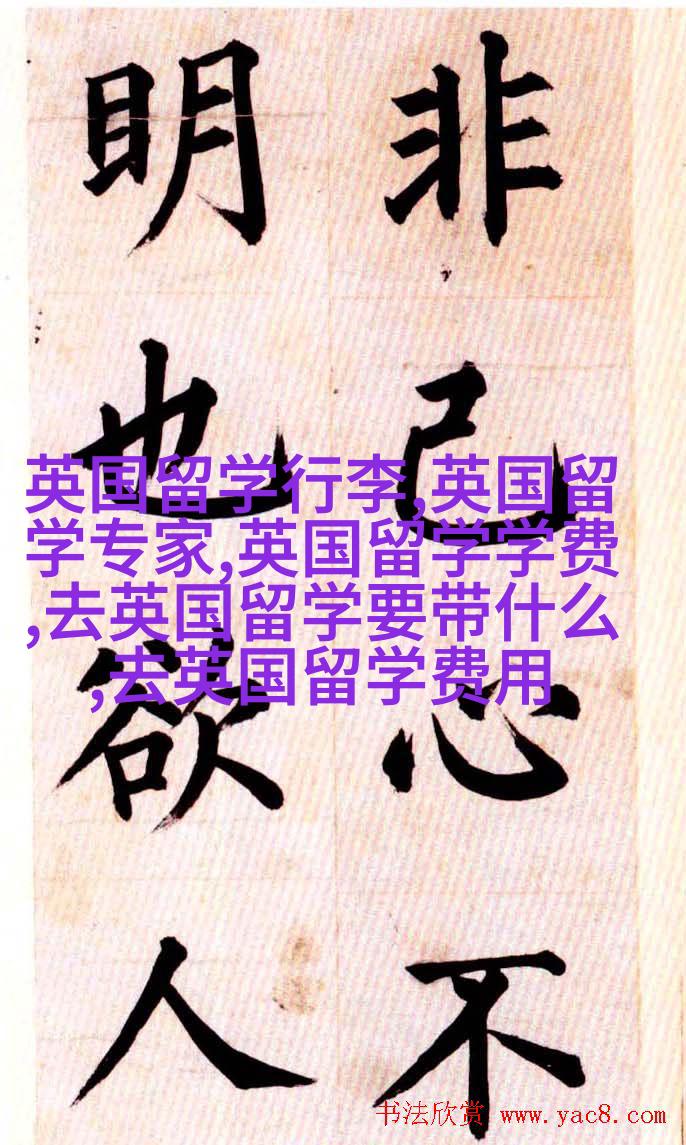 非己心不
明也欲人
英国留学行李,英国留
学专家,英国留学学费
,去英国留学要带什么
,去英国留学费用
书法欣赏 www.yac8.com